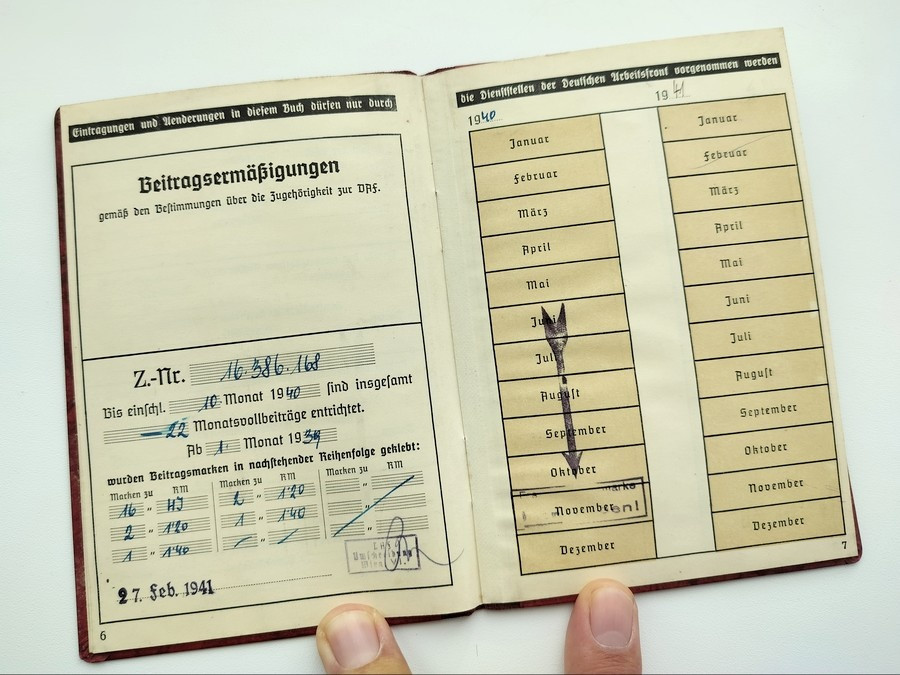 Eintragungen und Aenderungen in diesem Buch dürfen nur durch
Beitragsermäßigungen
gemäß den Bestimmungen über die Zugehörigkeit zur DAF.
Z.-Nr. 16.386.168
Bis einschl. 10 Monat 1940 sind insgesamt
22 Monatsvollbeiträge entrichtet.
Ab 1. Monat 1939
wurden Beitragsmarken in nachstehender Reihenfolge geklebt:
Marken zu RM Marken zu RM Marken zu RM
16 " HJ 2 " 1'20 "
2 " 1'20 1 " 1'40 "
1 " 1'40 " "
Umschreibung
Wien
27. Feb. 1941
6
die Dienststellen der Deutschen Arbeitsfront vorgenommen werden
1940
Januar
Februar
März
April
Mai
Juni
Juli
August
September
Oktober
November
Dezember
1941
Januar
Februar
März
April
Mai
Juni
Juli
August
September
Oktober
November
Dezember
7